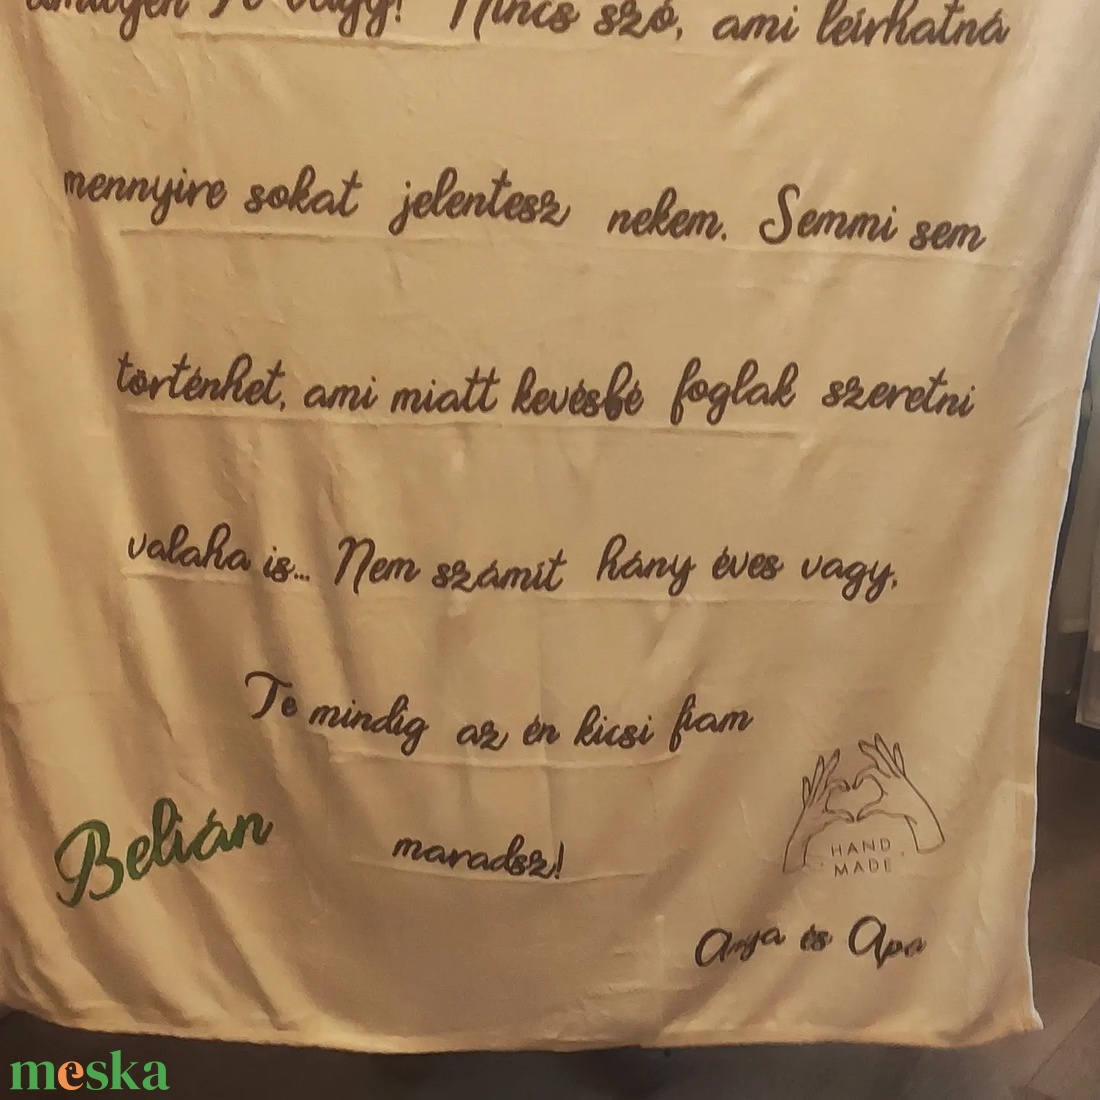 amilyen Te vagy! Nincs szó, ami leírhatná
mennyire sokat jelentesz nekem. Semmi sem
történhet, ami miatt kevésbé foglak szeretni
valaha is... Nem számít hány éves vagy,
Te mindig az én kicsi fiam
maradsz!
Belián
HAND
MADE
Anya és Apa
meska